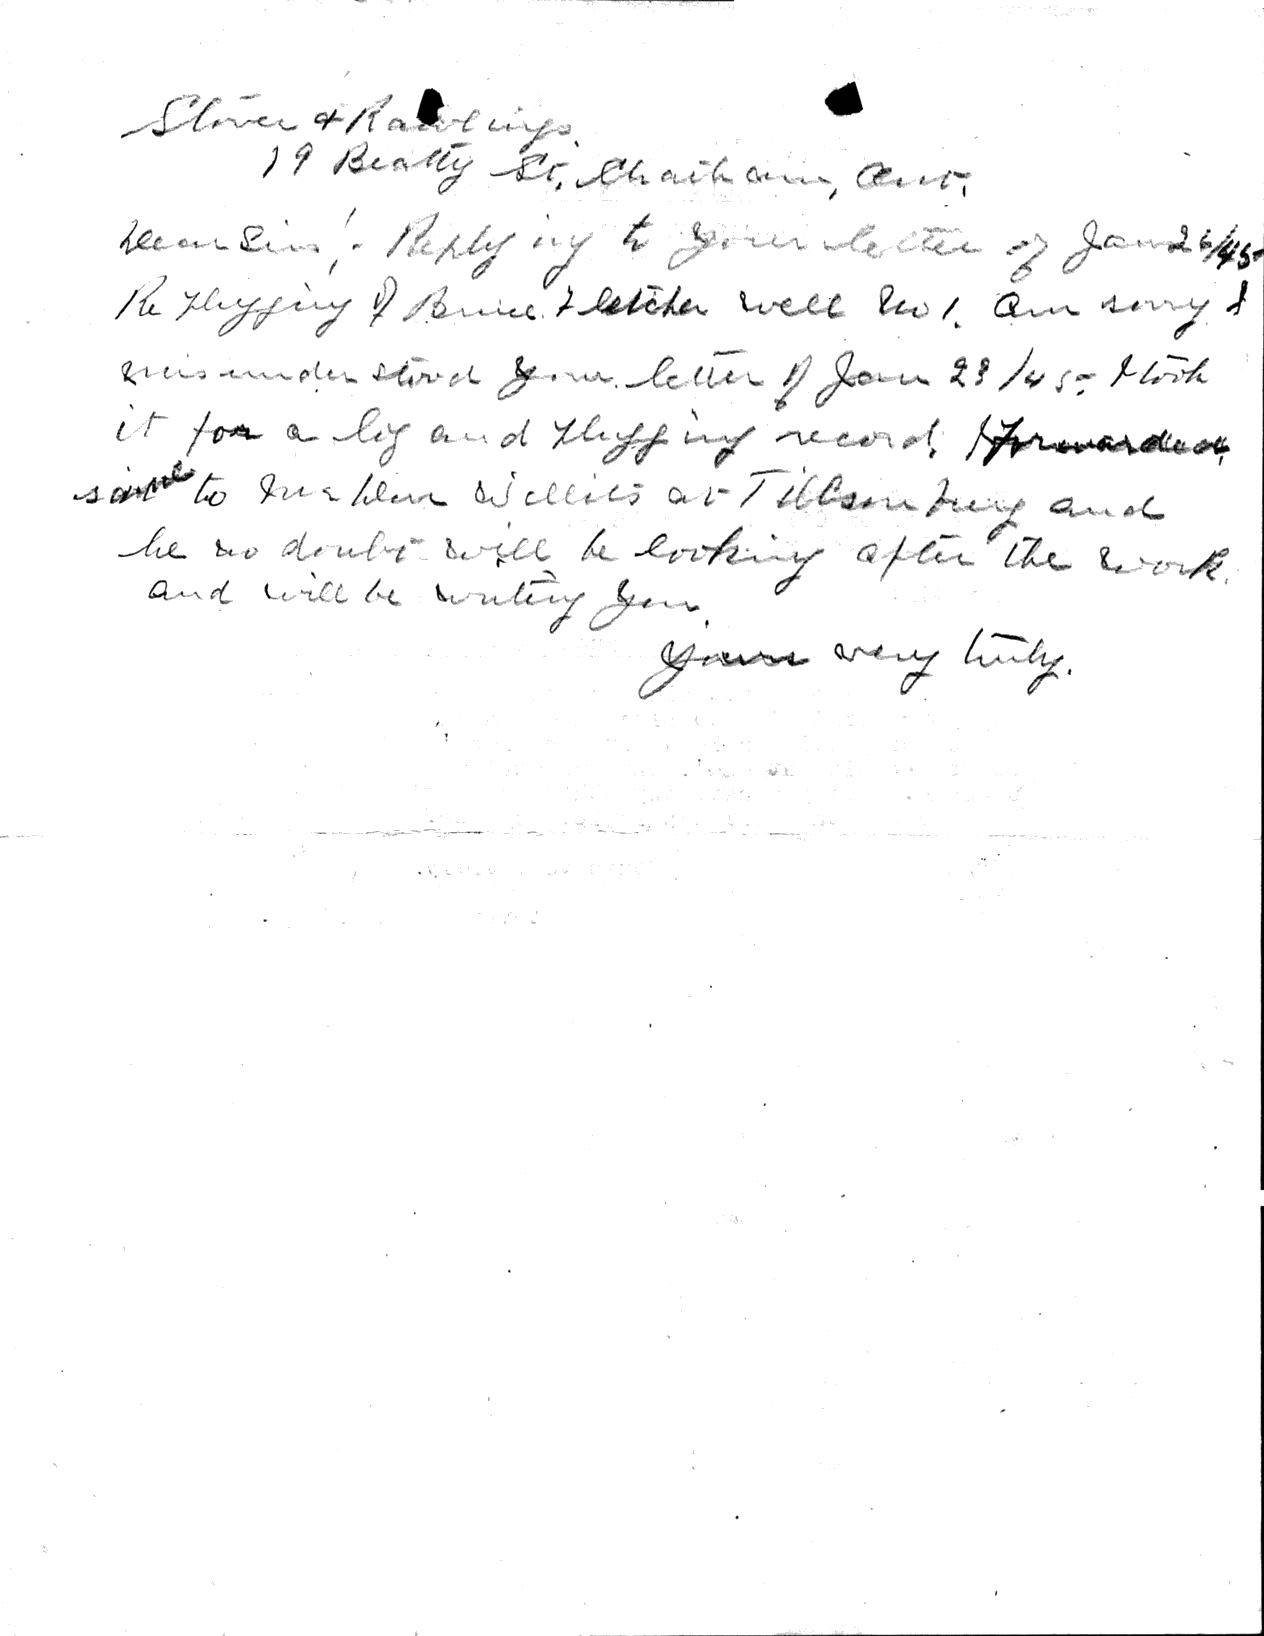 Stover & Rawlings.
19 Beatty St., Chatham, Ont.
Dear Sirs!- Replying to your letter of Jan 26/45
Re Plugging of Bruce Fletcher well No 1. Am sorry I
misunderstood your letter of Jan 23/45 I took
it for a log and plugging record. I forwarded
same to Mr Willits at Tillsonburg and
he no doubt will be looking after the work.
and will be writing you.
Yours very truly.